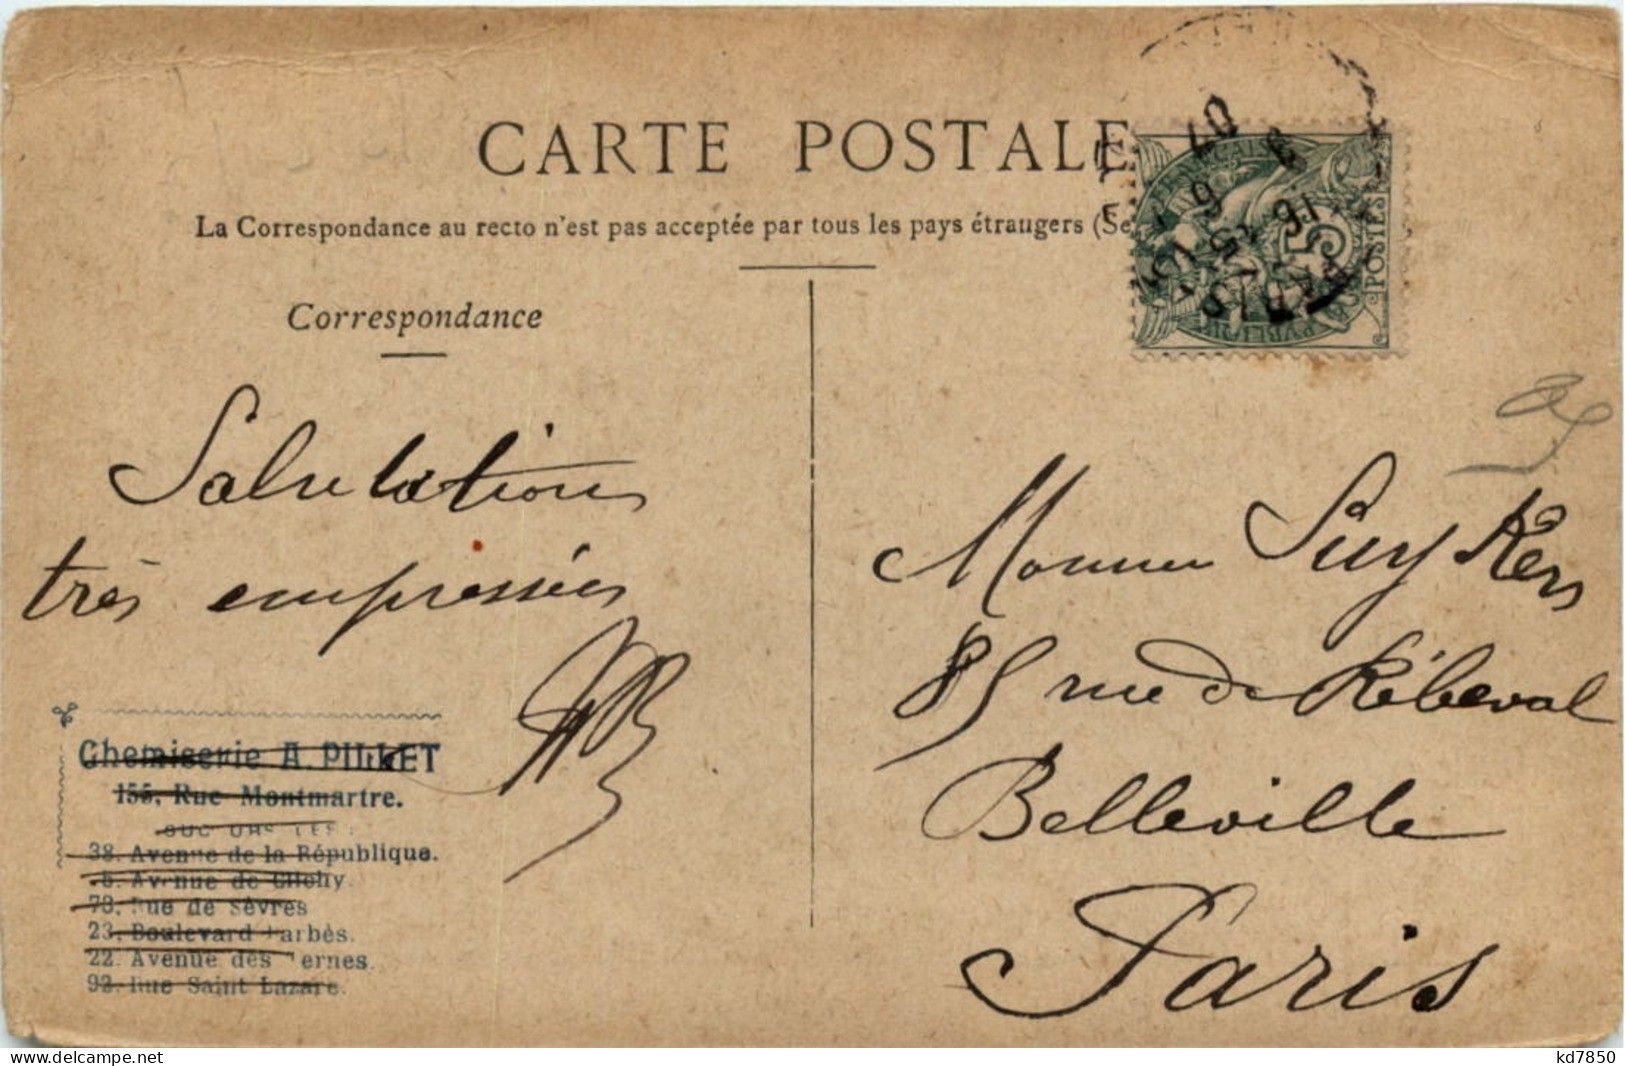 CARTE POSTALE
La Correspondance au recto n'est pas acceptée par tous les pays étrangers (Se
Correspondance
Salutations
très empressées
Chemiserie A. PILLET
155, Rue Montmartre.
38. Avenue de la République.
5, Avenue de Clichy
73, Rue de Sèvres
23. Boulevard Barbès.
22. Avenue des Ternes.
92. Rue Saint Lazare.
POSTES
5
PARIS
16
07
Monsieur Suykens
85 rue de Rébeval
Belleville
Paris
www.delcampe.net
kd7850